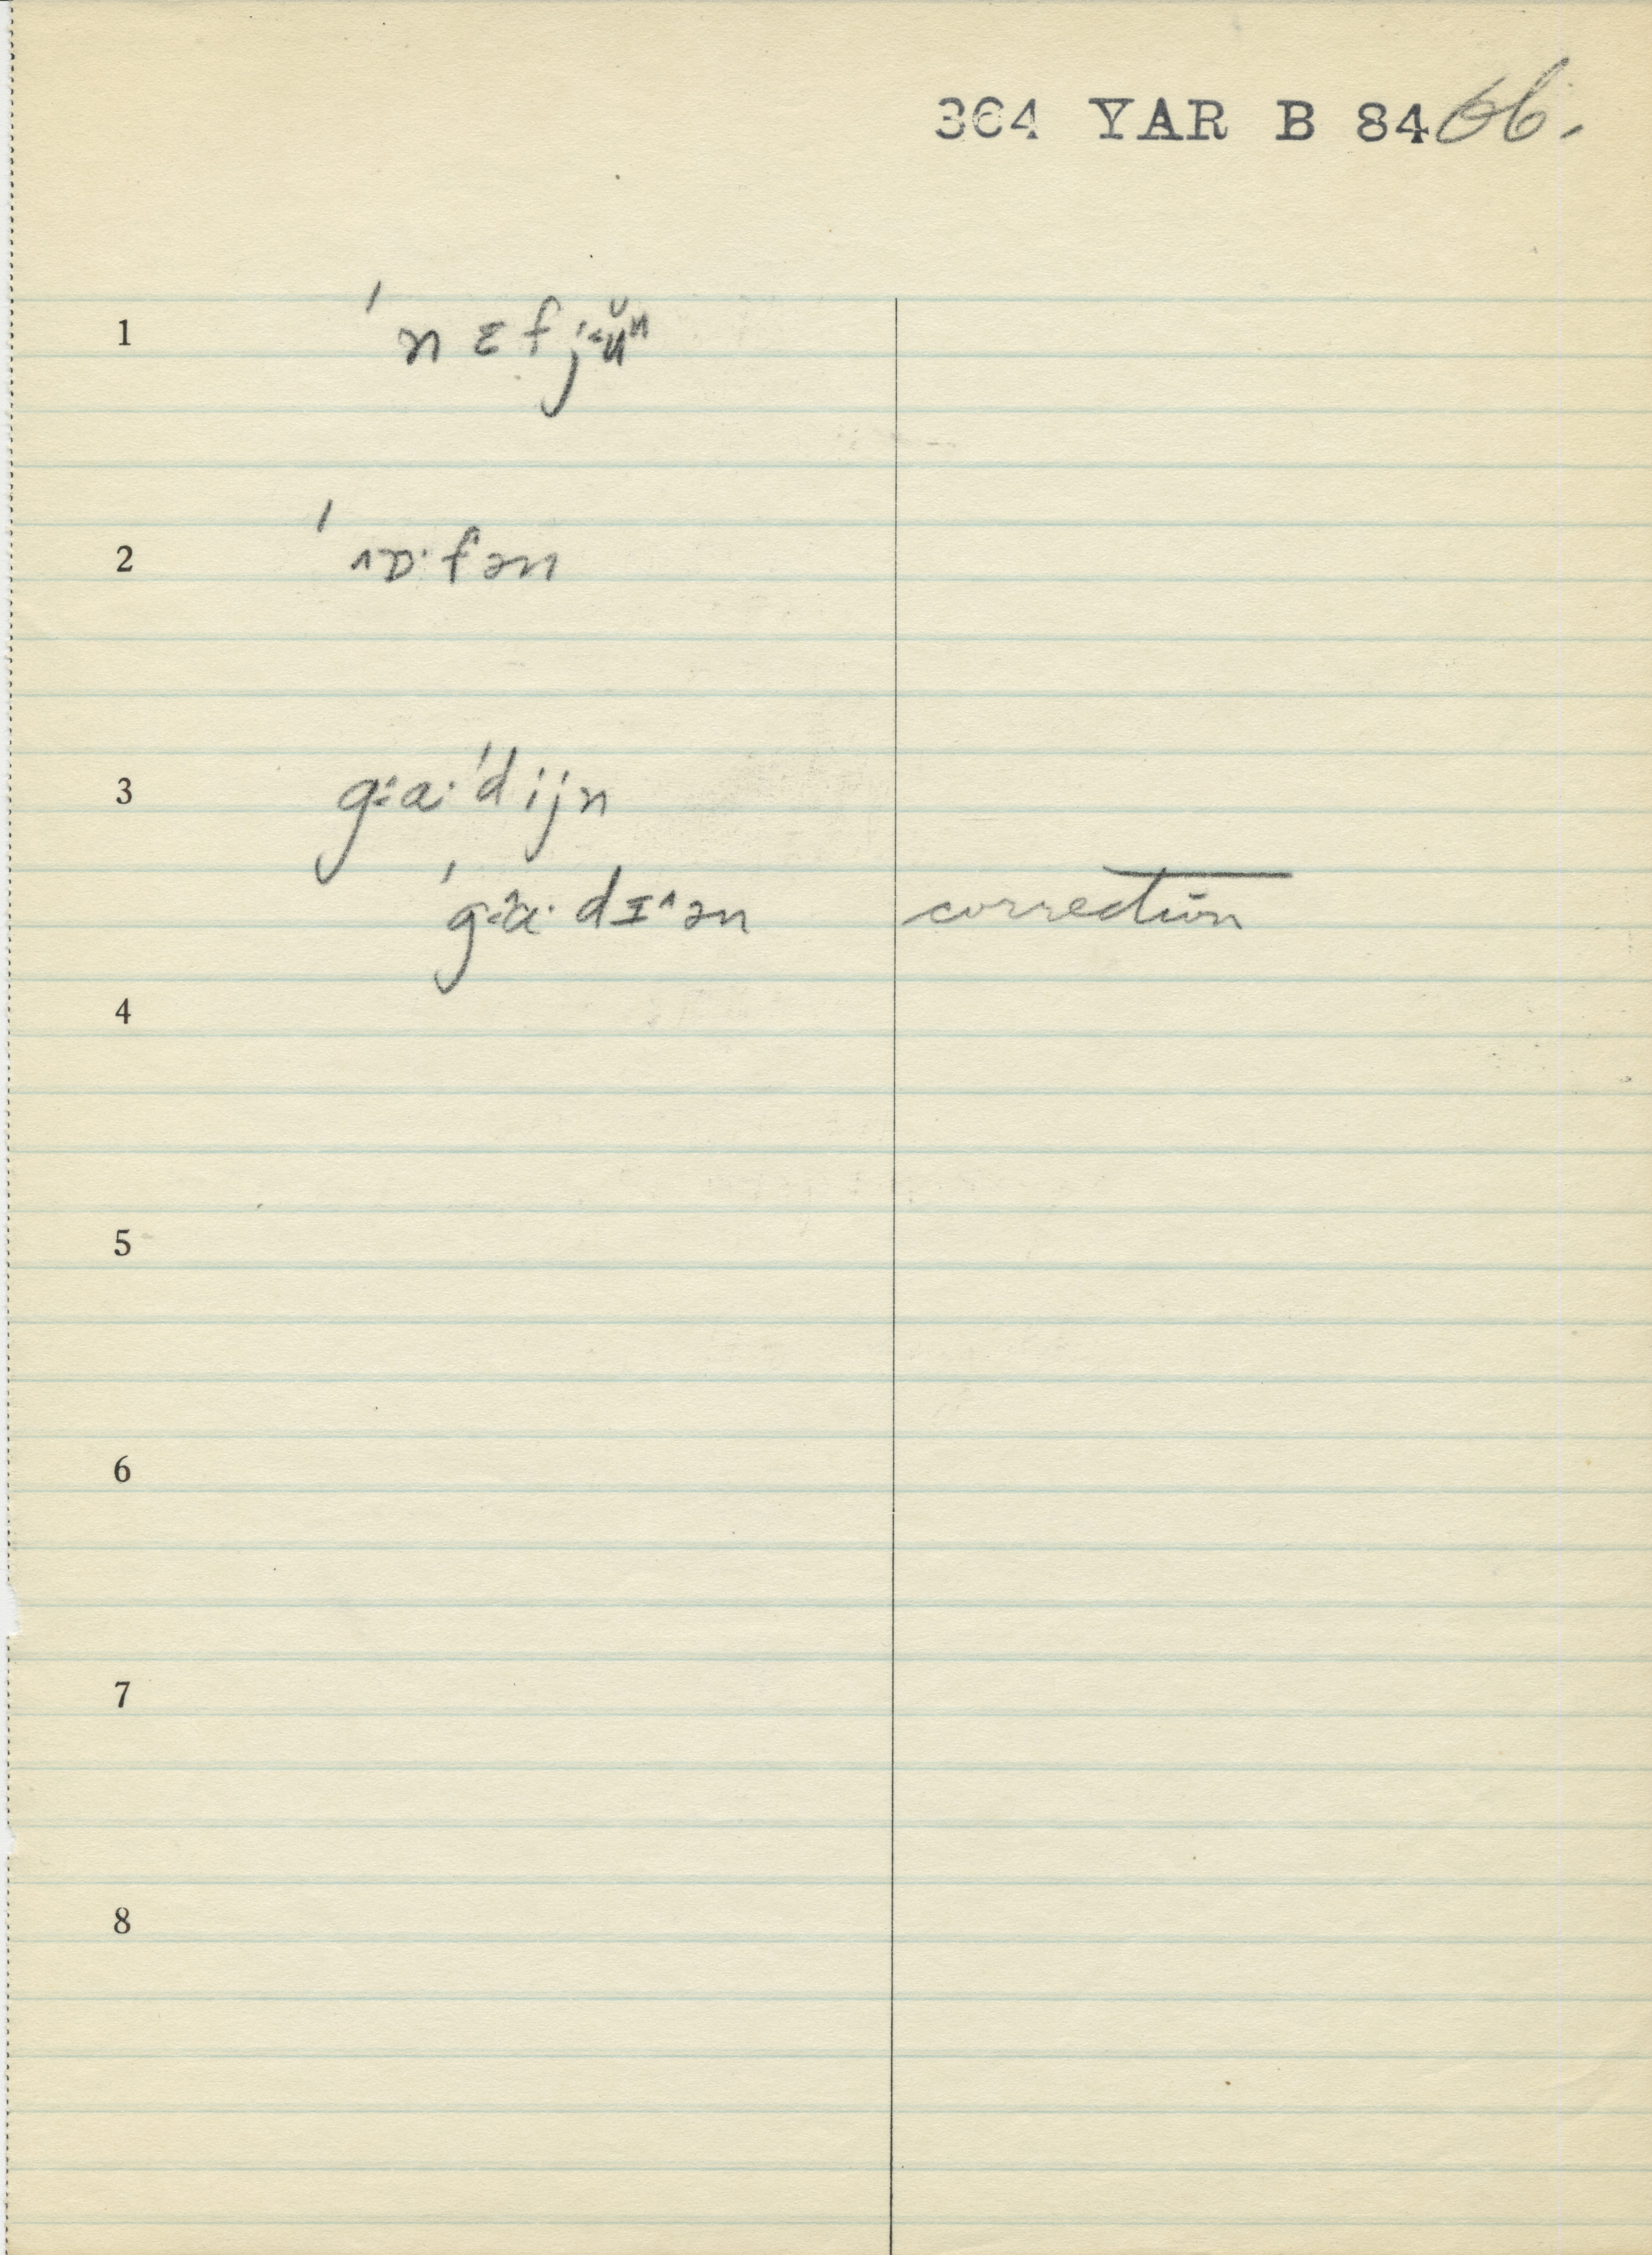 364 YAR B 84 66.
1 ˈnɛfjʉ̆ⁿ
2 ˈ^ɒ·fən
3 g⁝a·ˈdijn
ˈg⁝a·dɪ^ən correction
4
5
6
7
8